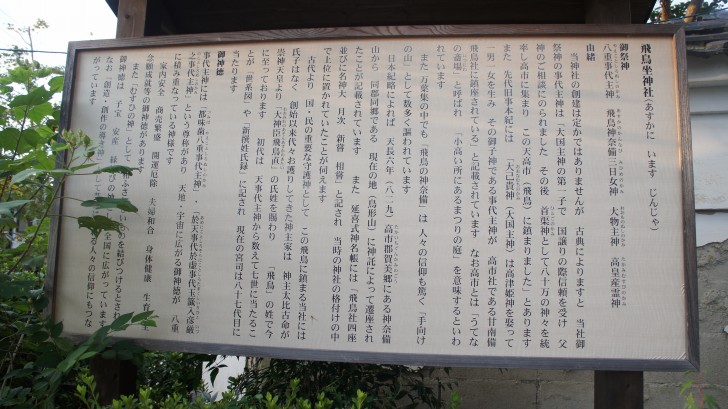 飛鳥坐神社(あすかに います じんじゃ)
御祭神
八重事代主神 飛鳥神奈備三日女神 大物主神 高皇産霊神
由緒
当神社の創建は定かではありませんが 古典によりますと 当社御
祭神の事代主神は「大国主神の第一子で 国譲りの際信頼を受け 父
神のご相談にのられました その後 首渠神として八十万の神々を統
率し高市に集まり この天高市(飛鳥)に鎮まりました」とあります
また 先代旧事本紀には 「大己貴神(大国主神)は高津姫神を娶って
一男一女を生み その御子神である事代主神が 高市社である甘南備
飛鳥社に鎮座されている」と記載されています なお高市とは「うてな
の斎場」と呼ばれ 「小高い所にあるまつりの庭」を意味するといわ
れています
また 万葉集の中でも「飛鳥の神奈備」は 人々の信仰も篤く「手向け
の山」として数多く謳われています
日本紀略によれば 天長六年(八二九)高市郡賀美郷にある神奈備
山から 同郡同郷である 現在の地(鳥形山)に神託によって遷座され
たことが記載されています また 延喜式神名帳には「飛鳥社四座
並びに名神大 月次 新嘗 相嘗」と記され 当時の神社の格付けの中
で上位に置かれていたことが伺えます
古代より 国・民の重要な守護神として この飛鳥に鎮まる当社には
氏子はなく 創始以来代々お護りしてきた神主家は 神主太比古命が
崇神天皇より「大神臣飛鳥直」の氏姓を賜わり 「飛鳥」の姓で今
に至っております 初代は 天事代主神から数えて七世に当たるこ
とが「世系図」や「新撰姓氏録」に記され 現在の宮司は八十七代目に
当たります
御神徳
事代主神には「都味歯八重事代主神」・「於天事代於虚事代玉籤入彦厳
之事代主神」という尊称があり 天地・宇宙に広がる御神徳が 八重
に積み重なっている神様です
家内安全 商売繁盛 開運厄除 夫婦和合 身体健康
念願成就等の御神徳があります
また「むすびの神」として を結びつけるとさ
御神徳は 子宝 安産 縁 全国に広がっています
なお「創造・創作の尊き神」として る人々の信仰にもつな
がっています